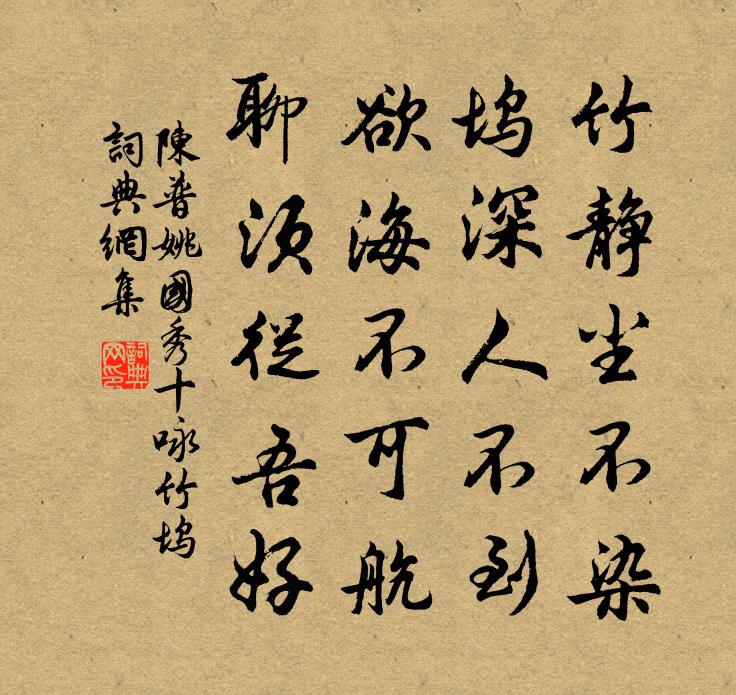 竹静尘不染
坞深人不到
欲海不可航
聊须从吾好
陳普姚國秀十咏竹坞
詞典網集
詞典网印